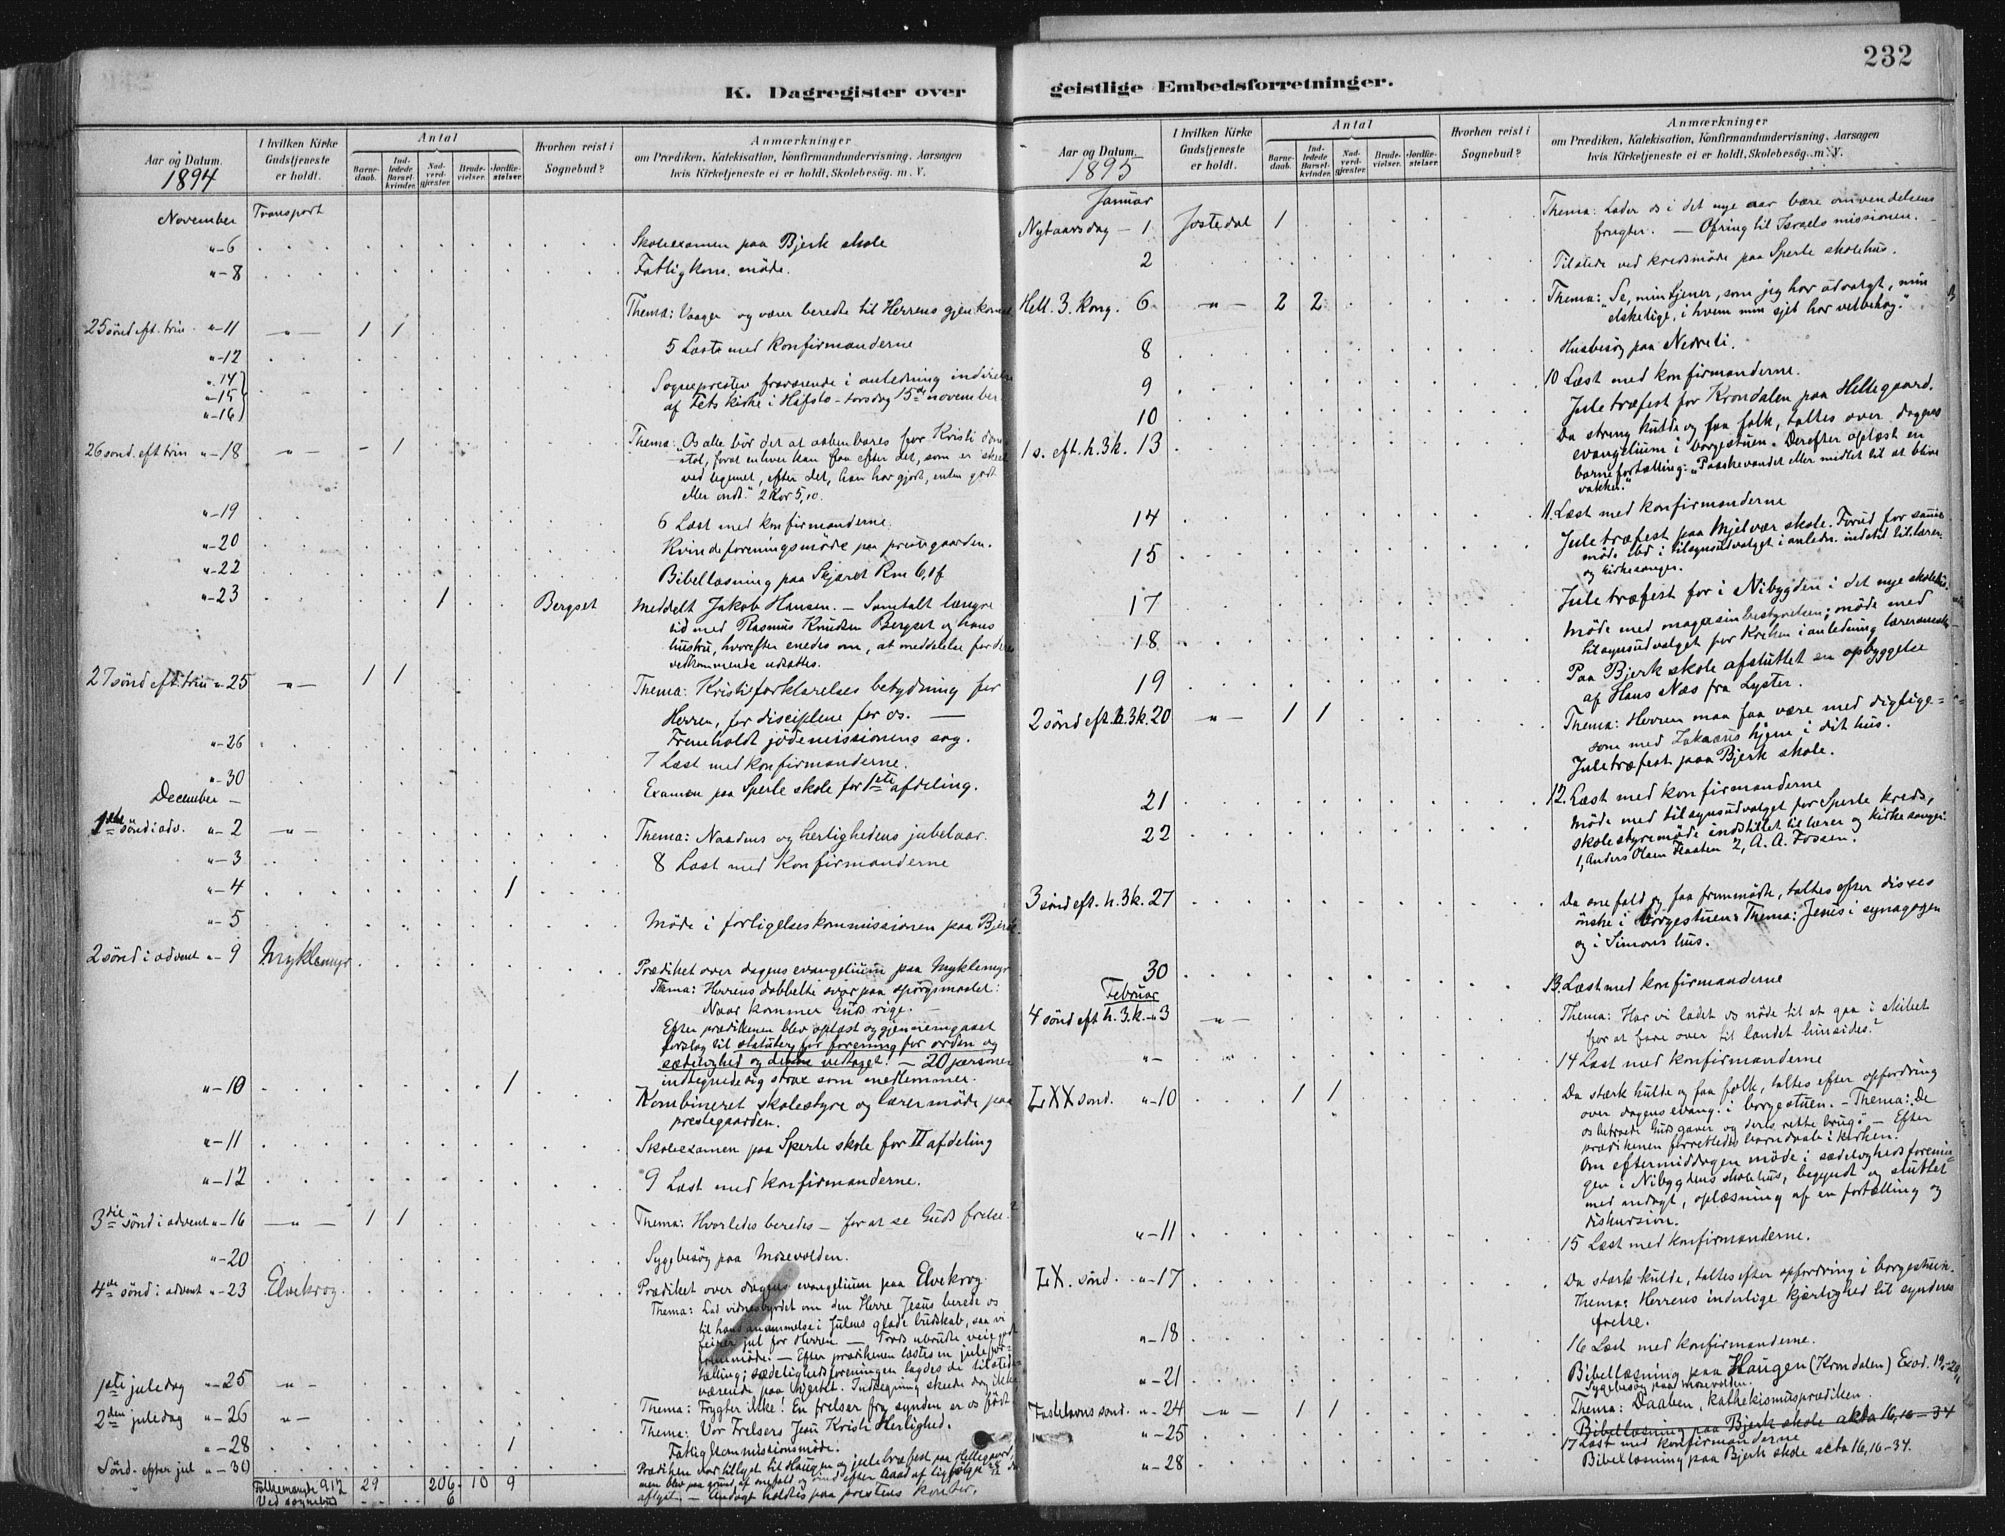 232
K. Dagregister over geistlige Embedsforretninger.
Aar og Datum. 1894
I hvilken Kirke Gudstjeneste er holdt.
Antal
Barnedaab.
Indledede Barselkvinder.
Nadverdgjæster.
Brudevielser.
Jordfæstelser.
Hvorhen reist i Sognebud?
Anmærkninger
om Prædiken, Katekisation, Konfirmandundervisning, Aarsagen
hvis Kirketjeneste ei er holdt, Skolebesøg. m. V.
November Transport
"-6 Skoleexamen paa Bjerk skole
"-8 Fattigkom. møde.
25 sönd eft. trin "-11 -"- 1 1 Thema: Vaager og værer beredte til Herrens gjenkomst
"-12 5 Læst med konfirmanderne
"-14
"-15
"-16
Sognepresten fraværende i anledning indvielse
af Fets kirke i Hafslo - torsdag 15de november.
26 sönd. eft trin "-18 -"- - 1 Thema: "Os alle bör det at aabenbares for Kristi dom-
stol, forat enhver kan faa efter det, som er skeet
ved legemet, efter det, han har gjort, enten godt
eller ondt." 2 Kor 5,10.
"-19 6 Læst med konfirmanderne.
"-20 Kvindeforeningsmøde paa prestegaarden.
"-22 Bibellæsning paa Skjæret Rm 6,1f
"-23 1 Bergset Meddelt Jakob Hansen. - Samtalt længre
tid med Rasmus Knudsen Bergset og hans
hustru, hvorefter enedes om, at meddelelse for deres
vedkommende udsættes.
27 sönd eft. trin "-25 -"- 1 1 Thema: Kristi forklarelses betydning for
Herren, for disciplene for os. -
Fremholdt jödemissionens sag.
"-26 7 Læst med konfirmanderne.
"-30 Examen paa Sperle skole for 1ste afdeling.
December -
1ste sönd i adv. "-2 -"- Thema: Naadens og herlighedens jubelaar.
"-3 8 Læst med konfirmanderne
"-4 1
"-5 Møde i forligelseskommissionen paa Bjerk
2 sönd i advent "-9 Myklemyr Prædiket over dagens evangelium paa Myklemyr
Thema: Herrens dobbelte svar paa spörgsmaalet:
Naar kommer Guds rige. -
Efter prædikenen blev oplæst og gjennemgaaet
forslag til statuter for forening for orden og
sædelighed og vedtaget. - 20 personer
indtegnede sig strax som medlemmer.
"-10 1 Kombineret skolestyre og lærermöde paa
prestegaarden.
"-11 Skoleexamen paa Sperle skole for II afdeling
"-12 9 Læst med konfirmanderne.
3die sönd i advent "-16 -"- 1 1 Thema: Hvorledes beredes - for at se Guds frelse?
"-20 Sygebesög paa Mosevolden.
4de sönd i advent "-23 Elvekrog Prædiket over dagens evangelium paa Elvekrog
Thema: Lad vidnesbyrdet om den Herre Jesus berede os
til hans anammelse i Julens glade budskab, saa vi
feirer jul for Herren - Trods ubrudte veie godt
fremmöde. - Efter prædikenen læstes en julefor-
tælling; sædelighedsforeningen lagdes de tilstede-
værende paa hjertet. Indtegning skeede dog ikke
1ste juledag "-25 -"- Thema: Frygter ikke! En frelser fra synden er os född
2den juledag "-26 "- Thema: Vor Frelsers Jesu Kristi Herlighed.
"-28 1 Fattigkommissionsmöde.
Sönd. efter jul "-30 Prædiken var tillyst til Haugen og juletræfest paa Hellegaard
men blev paa grund af
aflyst. - Andagt holdtes paa prestens kontor.
Folkemængde 912 29 206 10 9
Ved sognebud 6
Aar og Datum. 1895
I hvilken Kirke Gudstjeneste er holdt.
Antal
Barnedaab.
Indledede Barselkvinder.
Nadverdgjæster.
Brudevielser.
Jordfæstelser.
Hvorhen reist i Sognebud?
Anmærkninger
om Prædiken, Katekisation, Konfirmandundervisning, Aarsagen
hvis Kirketjeneste ei er holdt, Skolebesøg. m. V.
Januar
Nytaarsdag - 1 Jostedal 1 Thema: Lader os i det nye aar bære omvendelsens
frugter. - Ofring til Israelsmissionen.
2 Tilstede ved kredsmöde paa Sperle skolehus.
Hell. 3. Kong. 6 -"- 2 2 Thema: "Se, min tjener, som jeg har udvalgt, min
elskelige, i hvem min sjel har velbehag."
8 Husbesög paa Nedreli.
9 10 Læst med konfirmanderne.
10 Juletræfest for Krondalen paa Hellegaard.
1 s. eft. h. 3 k. 13 Da streng kulde og faa folk, taltes over dagens
evangelium i borgestuen. Derefter oplæst en
barnefortælling: "Paaskevandet eller midlet til at blive
vakker."
14 11. Læst med konfirmanderne
15 Juletræfest paa Mjelvær skole. Forud for samme
möde med i tilsynsudvalget i anledn. indstil. til lærer
og kirkesanger.
17 Juletræfest for i Nibygden i det nye skolehus
18 Møde med magasinbestyrelsen; möde med
tilsynsudvalget for Kreken i anledning læreransætt-
19 Paa Bjerk skole afsluttet en opbyggelse
af Hans Næs fra Lyster.
2 sönd eft. h. 3 k. 20 -"- 1 1 Thema: Herren maa faa være med dig lige-
som med Zakæus hjem i dit hus.
Juletræfest paa Bjerk skole.
21 12. Læst med konfirmanderne
22 Møde med tilsynsudvalget for Sperle kreds,
skolestyremöde indstillet til lærer og kirkesanger:
1, Anders Olsen Haaten 2, A. A. Fossen.
3 sönd eft. h. 3 k. 27 Da snefald og faa fremmödte, taltes efter disses
önske i borgestuen: Thema: Jesus i synagogen
og i Simons hus.
30 13. Læst med konfirmanderne
Februar
4 sönd eft h. 3. k. "3 -"- Thema: Har vi ladet os nöde til at gaa i skibet
for at fare over til landet hinsides?
"- 14 Læst med konfirmanderne
LXX sönd. "-10 1 1 Da stærk kulde og faa folk, taltes efter opfordring
over dagens evang. i borgestuen. - Thema: De
os betroede Guds gaver og deres rette brug. - Efter
prædikenen forrettedes barnedaab i kirken.
Om eftermiddagen möde i sædelighedsforenin-
gen i Nibygdens skolehus, begyndt og sluttet
med andagt, oplæsning af en fortælling og
diskussion.
"-11 15 Læst med konfirmanderne.
LX. sönd. "-17 Da stærk kulde, taltes efter opfordring i borgestuen.
Thema: Herrens inderlige kjærlighed til synderes
frelse.
"-18 16 Læst med konfirmanderne.
"-21 Bibellæsning paa Haugen (Krondalen) Exod. 19.-20
Sygebesög paa Mosevolden.
Fastelavns sönd. "-24 -"- 1 1 Thema: Daaben, kathekismusprædiken.
Bibellæsning paa Bjerk skole akta 16,16-34
"-25 17 Læst med konfirmanderne
"-28 Bibellæsning paa Bjerk skole acta 16,16-34.